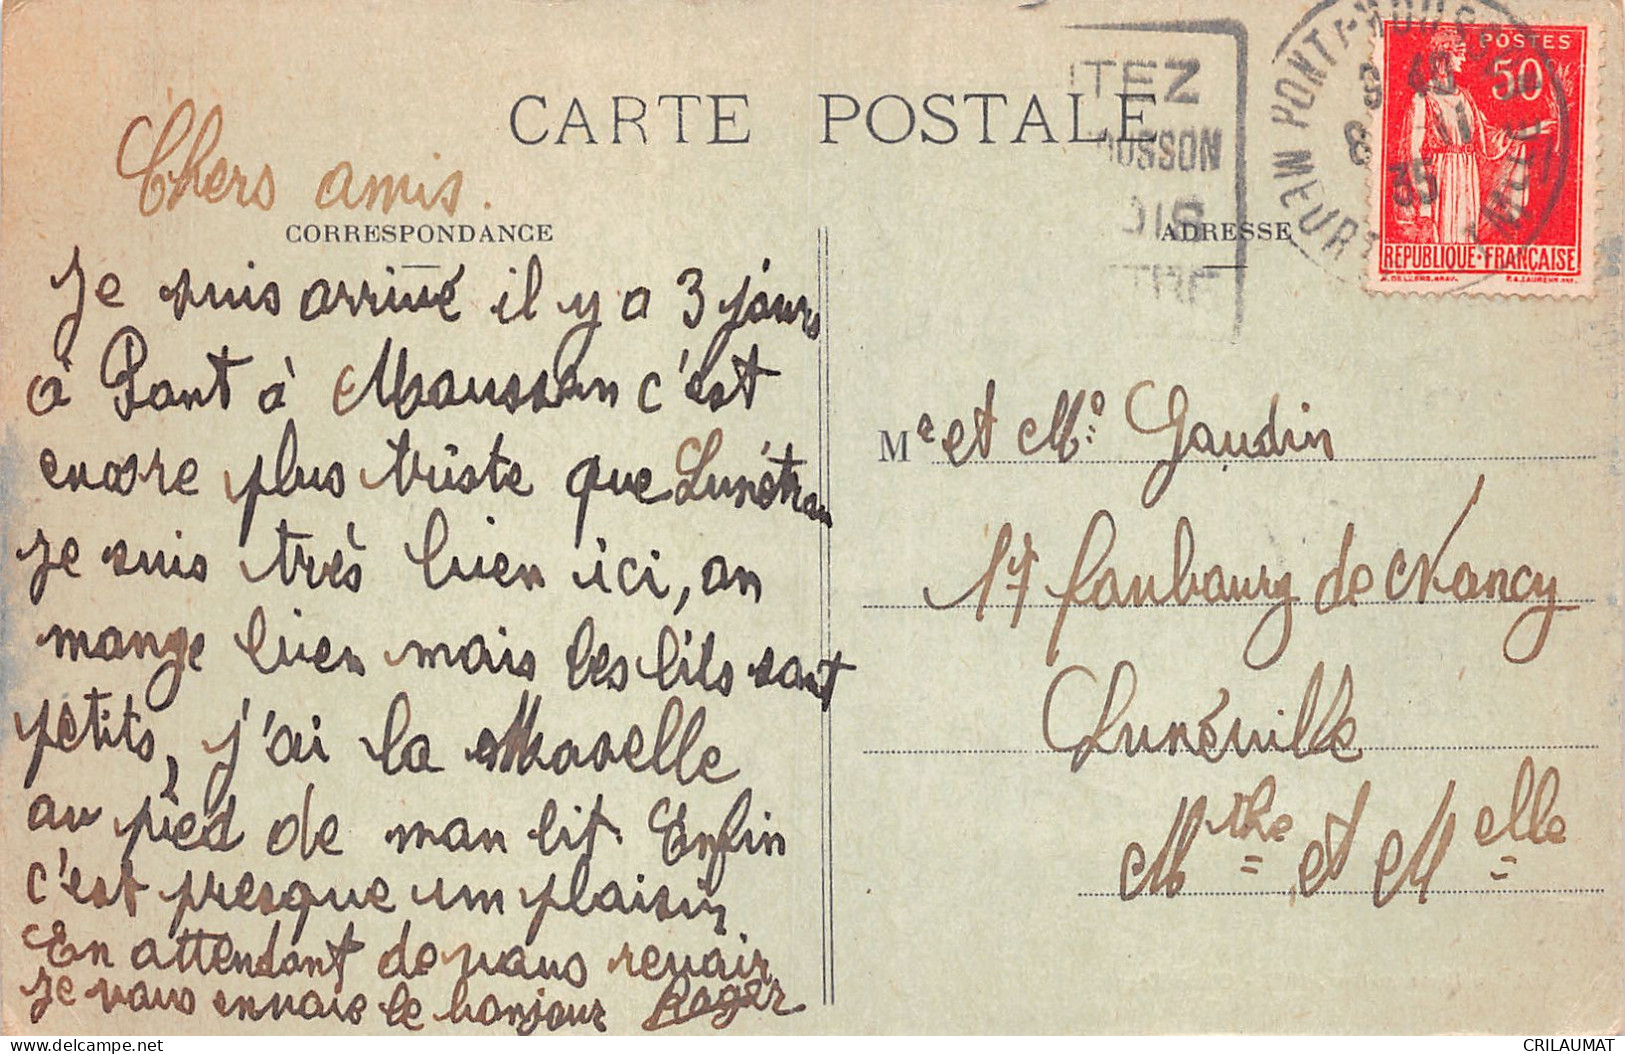 CARTE POSTALE
Chers amis.
CORRESPONDANCE
Je suis arrivé il y a 3 jours
à Pont à Mousson c'est
encore plus triste que
je suis très bien ici, on
mange bien mais les lits sont
petits, j'ai la Moselle
au pied de mon lit. Enfin
c'est presque un plaisir
En attendant de vous revoir
je vous envoie le bonjour Roger
ITEZ
OUSSON
OIS
TRE
ADRESSE
PONT-A-MOUSSON
MEURTHE
MLLE
35
POSTES
50c
REPUBLIQUE·FRANÇAISE
Mr et Me Gaudin
17 faubourg de Nancy
Lunéville
Mthe et Melle
CRILAUMAT
delcampe.net